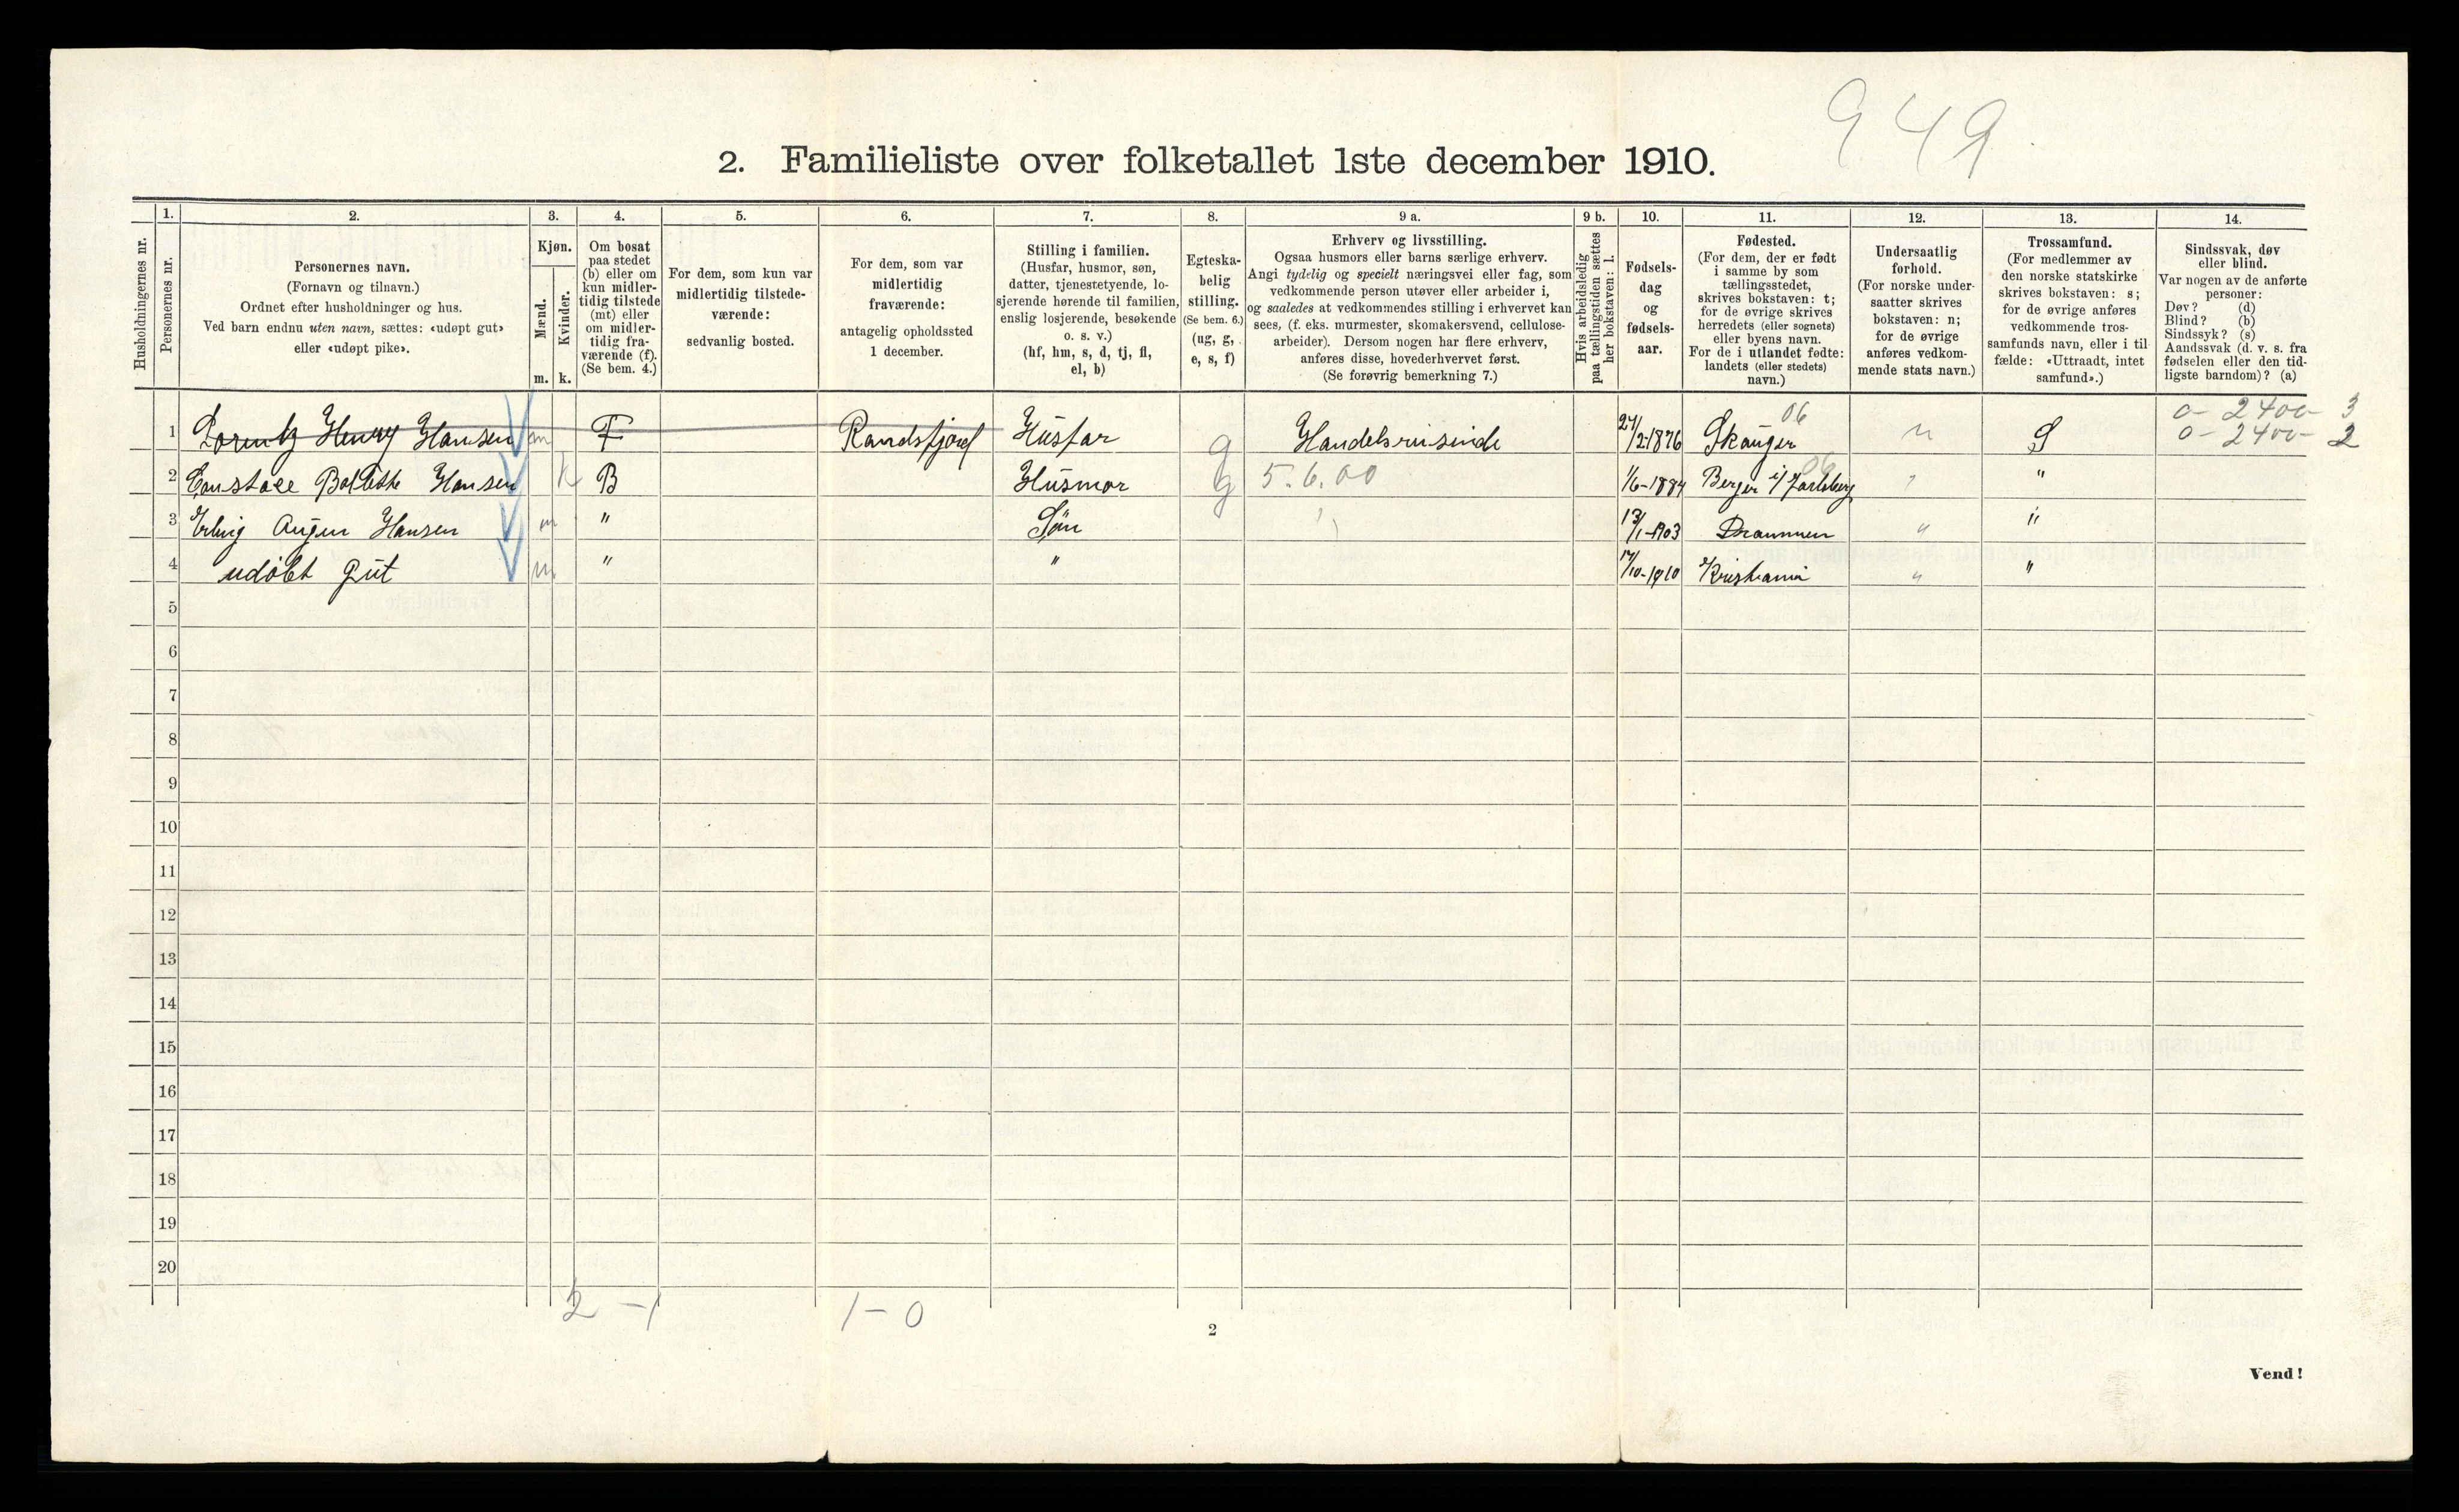 949
2. Familieliste over folketallet 1ste december 1910.
Husholdningernes nr.
1.
Personernes nr.
2.
Personernes navn.
(Fornavn og tilnavn.)
Ordnet efter husholdninger og hus.
Ved barn endnu uten navn, sættes: «udøpt gut»
eller «udøpt pike».
3.
Kjøn.
Mænd.
m.
Kvinder.
k.
4.
Om bosat
paa stedet
(b) eller om
kun midler-
tidig tilstede
(mt) eller
om midler-
tidig fra-
værende (f).
(Se bem. 4.)
5.
For dem, som kun var
midlertidig tilstede-
værende:
sedvanlig bosted.
6.
For dem, som var
midlertidig
fraværende:
antagelig opholdssted
1 december.
7.
Stilling i familien.
(Husfar, husmor, søn,
datter, tjenestetyende, lo-
sjerende hørende til familien,
enslig losjerende, besøkende
o. s. v.)
(hf, hm, s, d, tj, fl,
el, b)
8.
Egteska-
belig
stilling.
(Se bem. 6.)
(ug, g,
e, s, f)
9 a.
Erhverv og livsstilling.
Ogsaa husmors eller barns særlige erhverv.
Angi tydelig og specielt næringsvei eller fag, som
vedkommende person utøver eller arbeider i,
og saaledes at vedkommendes stilling i erhvervet kan
sees, (f. eks. murmester, skomakersvend, cellulose-
arbeider). Dersom nogen har flere erhverv,
anføres disse, hovederhvervet først.
(Se forøvrig bemerkning 7.)
9 b.
Hvis arbeidsledig
paa tællingstiden sættes
her bokstaven: l.
10.
Fødsels-
dag
og
fødsels-
aar.
11.
Fødested.
(For dem, der er født
i samme by som
tællingsstedet,
skrives bokstaven: t;
for de øvrige skrives
herredets (eller sognets)
eller byens navn.
For de i utlandet fødte:
landets (eller stedets)
navn.)
12.
Undersaatlig
forhold.
(For norske under-
saatter skrives
bokstaven: n;
for de øvrige
anføres vedkom-
mende stats navn.)
13.
Trossamfund.
(For medlemmer av
den norske statskirke
skrives bokstaven: s;
for de øvrige anføres
vedkommende tros-
samfunds navn, eller i til-
fælde: «Uttraadt, intet
samfund».)
14.
Sindssvak, døv
eller blind.
Var nogen av de anførte
personer:
Døv? (d)
Blind? (b)
Sindssyk? (s)
Aandssvak (d. v. s. fra
fødselen eller den tid-
ligste barndom)? (a)
06 0-2400-3
1 Lorentz Henry Hansen m F Randsfjord Husfar g Handelsreisende 24/2-1876 Skauger n S 0-2400-2
2 Hansen k B Husmor g 5.6.00 1/6-1884 Berger i/ Jarlsberg 06 "
3 Hansen m " Søn 13/1-1903 Drammen " "
4 udøbt Gut m " " 17/10-1910 Kristiania " "
5
6
7
8
9
10
11
12
13
14
15
16
17
18
19
20
2-1 1-0
2
Vend!